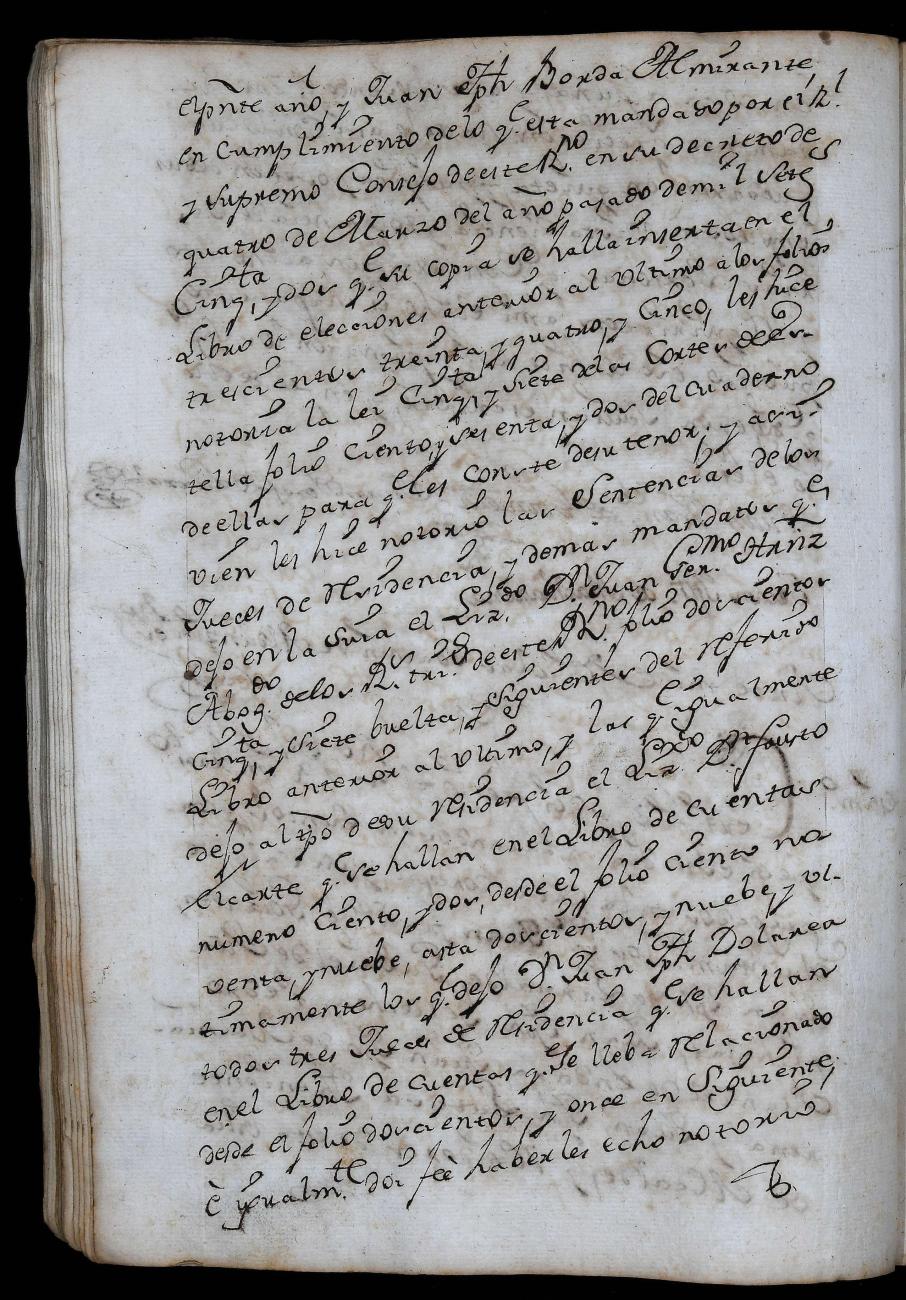 el pñte año, y Juan Jph Borda Almirante,
en cumplimiento de lo q.e esta mandado por el R.l
y supremo Consejo de este R.no en su decreto de
quatro de Marzo del año pasado de mil sete.s
Cinq.ta, y dos q.e su copia se halla inserta en el
Libro de elecciones anterior al ultimo a los folios
trescientos treinta, y quatro, y Cinco, les hice
notoria la lei Cinq.ta y siete de las Cortes de Es-
tella folio Ciento, y sesenta, y dos del cuaderno
de ellas para q.e les conste de su tenor; y assi-
vien les hice notorio las Sentencias de los
Jueces de Residencia, y demas mandatos q.e
dejo en la suia el Liz.do D.n Juan Ger.mo Hrriz
Abog.do de los R.s tri.s de este R.no folio doscientos
Cinq.ta, y siete buelta, y siguientes del referido
Libro anterior al ultimo, y las q.e igualmente
dejo al tpõ de su residencia el Liz.do D.n Fausto
Elcarte q.e se hallan en el Libro de cuentas
numero Ciento, y dos, desde el folio ciento no-
venta, y nuebe, asta doscientos, y nuebe, y ul-
timamente los q.e dejo D.n Juan Jph Dolarea
todos tres Jueces de Residencia q.e se hallan
en el Libro de cuentas q.e se lleba relacionado
desde el folio doscientos, y once en siguiente,
è ygualm.te doi feè haberles echo notorio